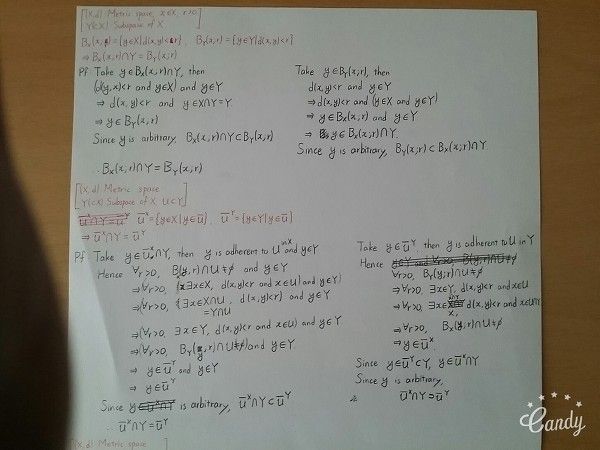 [(X,d) Metric space, x∈X, r>0
Y(⊂X) Subspace of X]
Bx(x;r)={y∈X|d(x,y)<r}, By(x;r)={y∈Y|d(x,y)<r}
⇒ Bx(x;r)∩Y=By(x;r)
Pf Take y∈Bx(x;r)∩Y, then
(d(y,x)<r and y∈X) and y∈Y
⇒ d(x,y)<r and y∈X∩Y=Y
⇒ y∈By(x;r)
Since y is arbitrary, Bx(x;r)∩Y⊂By(x;r)
Take y∈By(x;r), then
d(x,y)<r and y∈Y
⇒ d(x,y)<r and (y∈X and y∈Y)
⇒ y∈Bx(x;r) and y∈Y
⇒ y∈Bx(x;r)∩Y
Since y is arbitrary, By(x;r)⊂Bx(x;r)∩Y
∴ Bx(x;r)∩Y=By(x;r)
[(X,d) Metric space
Y(⊂X) Subspace of X, U⊂Y]
Ūˣ={y∈X|y∈Ū}, Ūʸ={y∈Y|y∈Ū}
⇒ Ūˣ∩Y=Ūʸ
Pf Take y∈Ūˣ∩Y, then y is adherent to U in X and y∈Y
Hence ∀r>0, B(y,r)∩U≠∅ and y∈Y
⇒ ∀r>0, (∃x∈X, d(x,y)<r and x∈U) and y∈Y
⇒ ∀r>0, (∃x∈X∩U, d(x,y)<r) and y∈Y
=Y∩U
⇒ (∀r>0, ∃x∈Y, d(x,y)<r and x∈U) and y∈Y
⇒ (∀r>0, By(y,r)∩U≠∅) and y∈Y
⇒ y∈Ūʸ and y∈Y
⇒ y∈Ūʸ
Since y is arbitrary, Ūˣ∩Y⊂Ūʸ
∴ Ūˣ∩Y=Ūʸ
Take y∈Ūʸ, then y is adherent to U in Y
Hence
∀r>0, By(y,r)∩U≠∅
⇒ ∀r>0, ∃x∈Y, d(x,y)<r and x∈U
⇒ ∀r>0, ∃x∈X, d(x,y)<r and x∈U
⇒ ∀r>0, Bx(y,r)∩U≠∅
⇒ y∈Ūˣ
Since y∈Ūʸ⊂Y, y∈Ūˣ∩Y
Since y is arbitrary,
Ūˣ∩Y⊃Ūʸ
[(X,d) Metric space
Candy